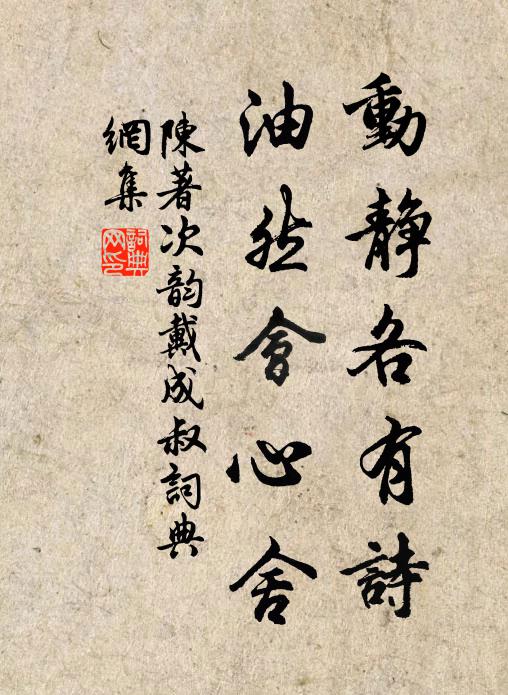 動靜各有詩
油然會心舍
陳著次韵戴成叔詞典
網集
詞典網印